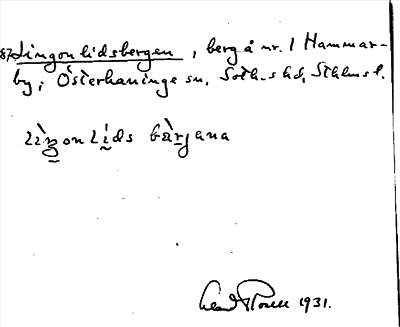 87. Lingonlidsbergen, berg å nr. 1 Hammar-
by, Österhaninge sn, Soth-s hd, Sthlms l.
lìŋonlìds bàrjana
1931.